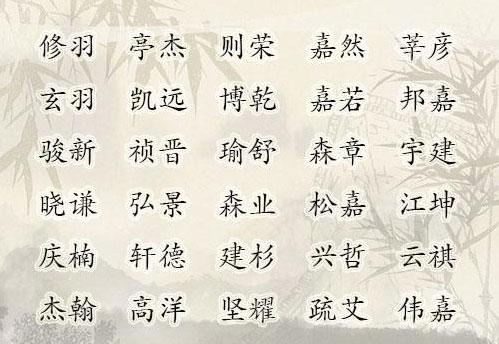 修羽 亭杰 则荣 嘉然 莘彦
玄羽 凯远 博乾 嘉若 邦嘉
骏新 祯晋 瑜舒 森章 宇建
晓谦 弘景 森业 松嘉 江坤
庆楠 轩德 建杉 兴哲 云祺
杰翰 高洋 坚耀 疏艾 伟嘉